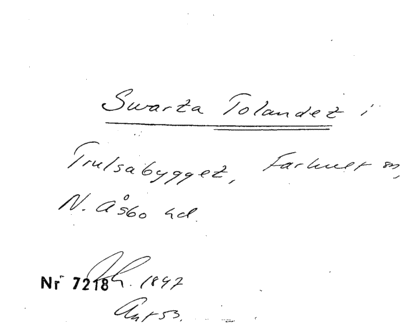 Swarta Tolandet i
Trulsabygget, Farhult sn,
N. Åsbo hd.
Nr 7218 1847